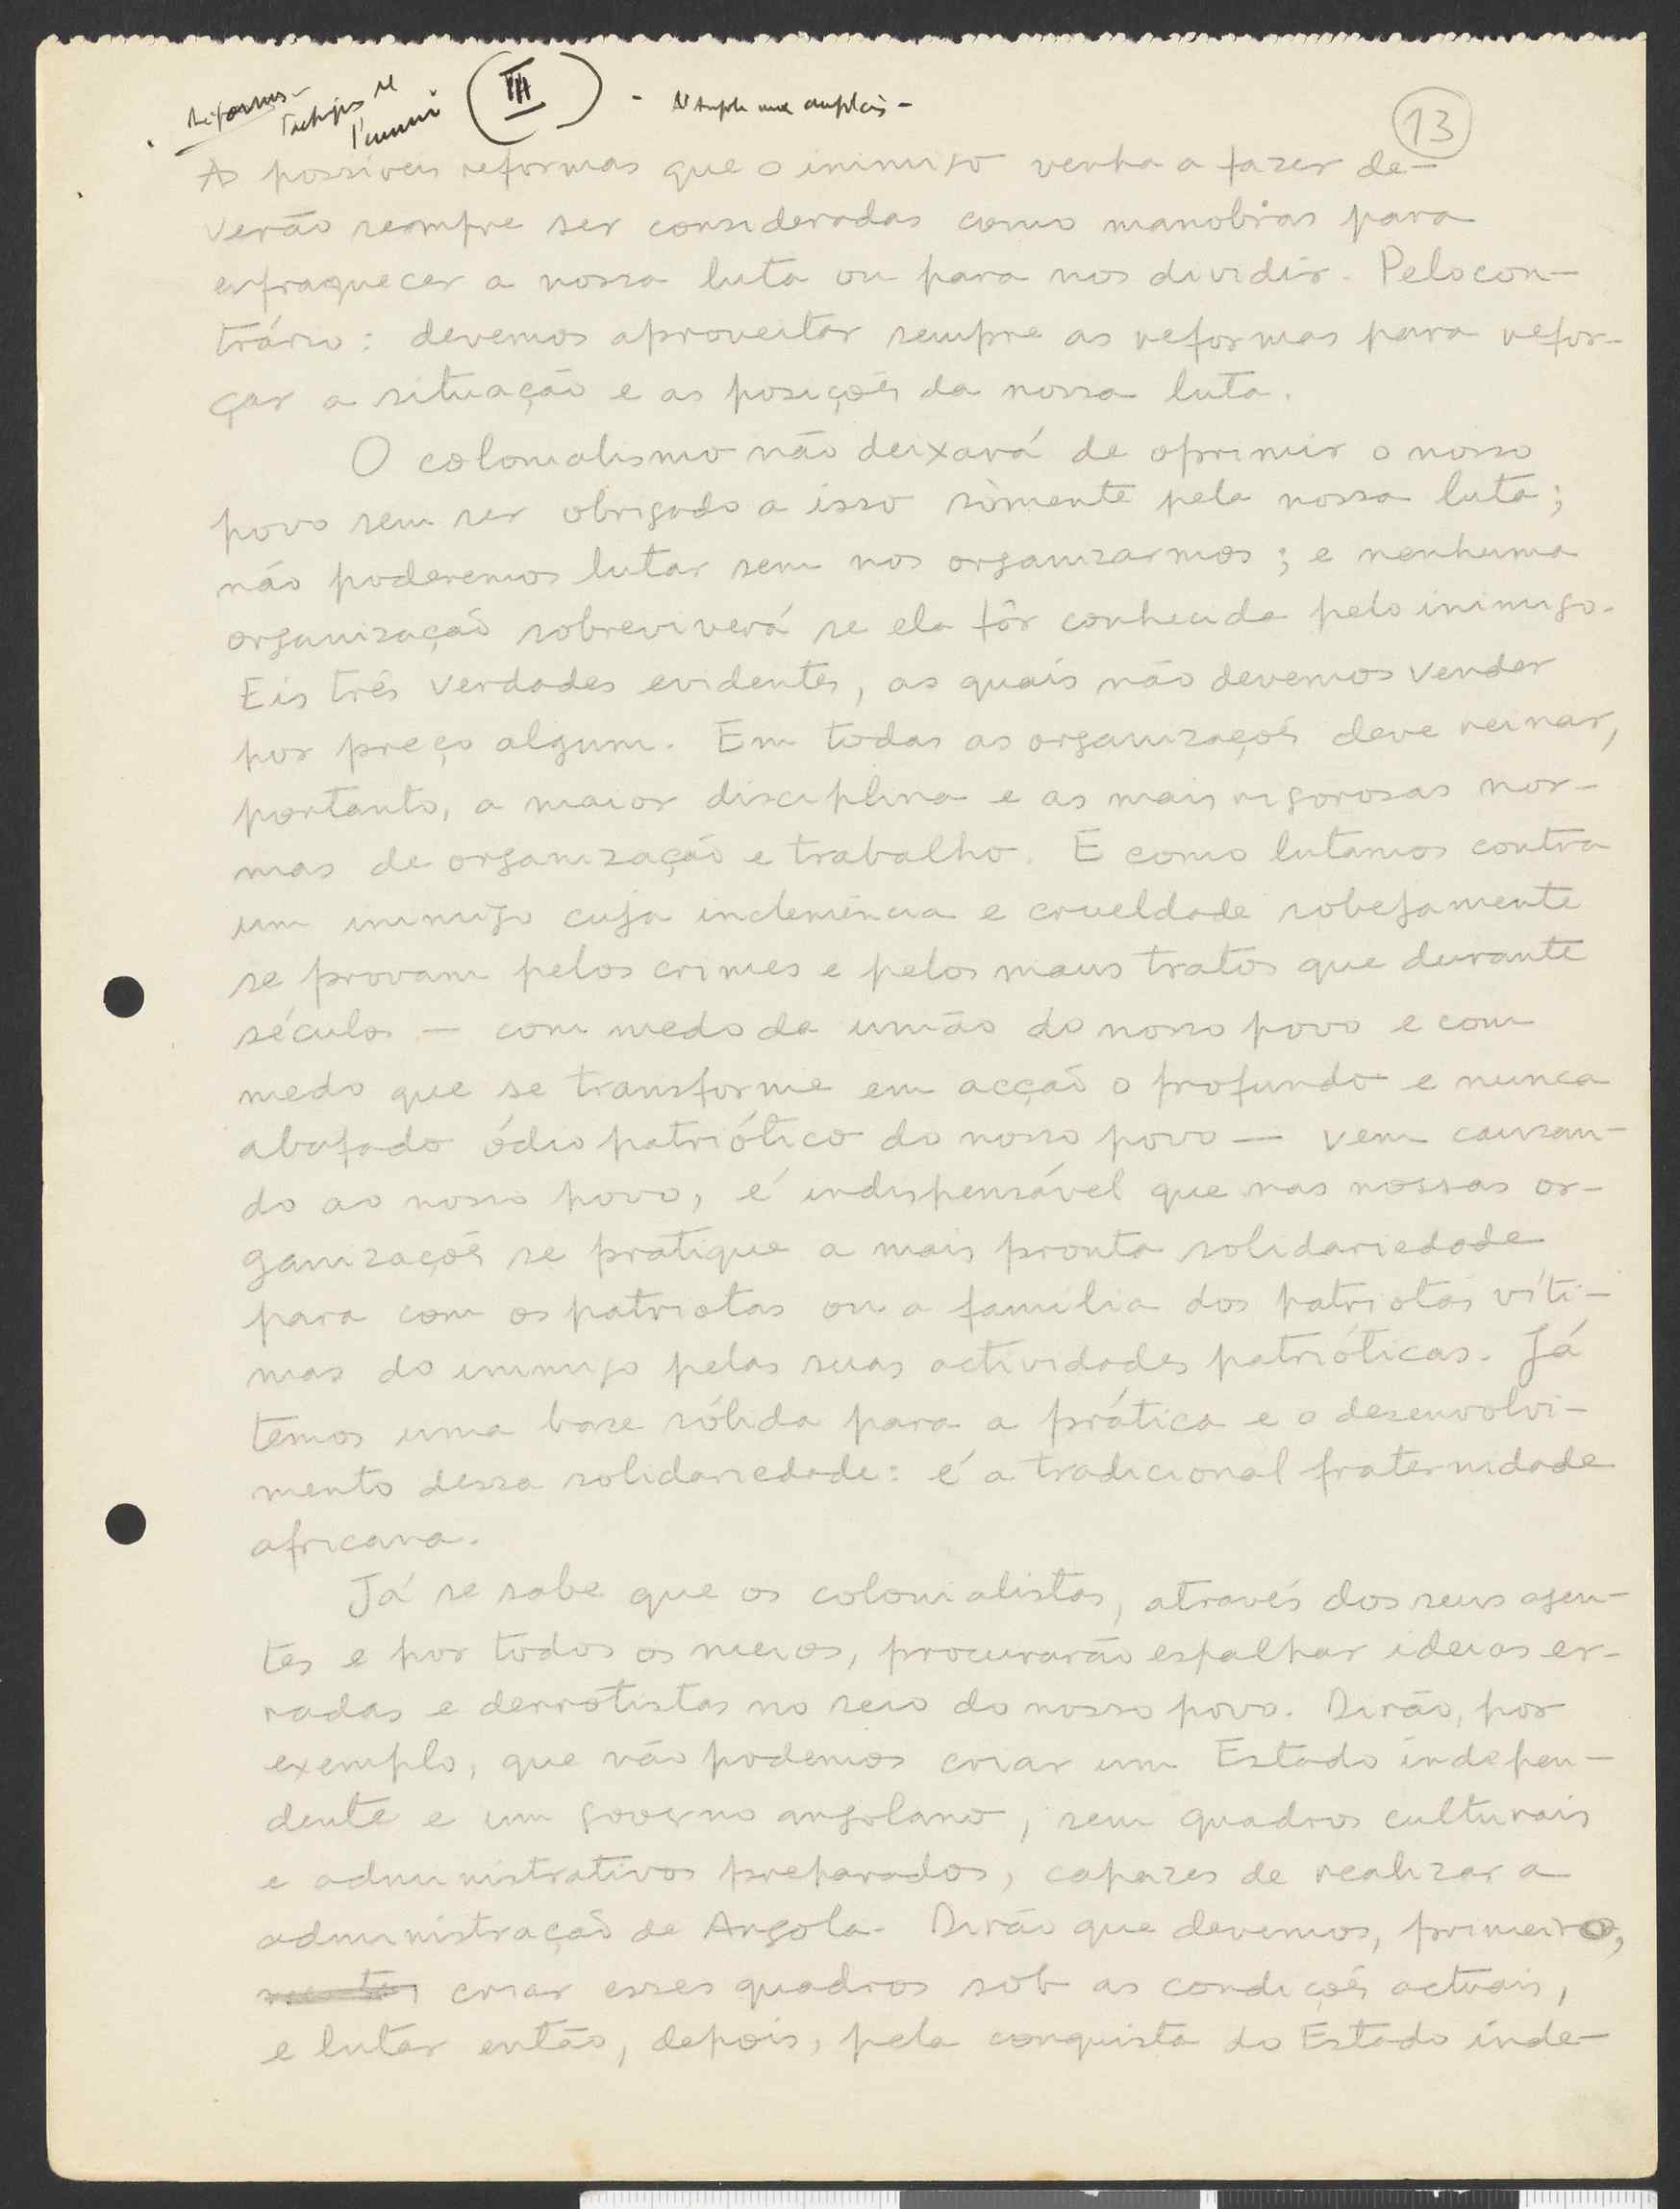 Réformes -
l'ennemi
(III)
13
As possíveis reformas que o inimigo venha a fazer de-
verão sempre ser consideradas como manobras para
enfraquecer a nossa luta ou para nos dividir. Pelo con-
trário: devemos aproveitar sempre as reformas para refor-
çar a situação e as posições da nossa luta.
O colonialismo não deixará de oprimir o nosso
povo sem ser obrigado a isso sòmente pela nossa luta;
não poderemos lutar sem nos organizarmos; e nenhuma
organização sobreviverá se ela fôr conhecida pelo inimigo.
Eis três verdades evidentes, as quais não devemos vender
por preço algum. Em todas as organizações deve reinar,
portanto, a maior disciplina e as mais rigorosas nor-
mas de organização e trabalho. E como lutamos contra
um inimigo cuja inclemência e crueldade sobejamente
se provam pelos crimes e pelos maus tratos que durante
séculos — com medo da união do nosso povo e com
medo que se transforme em acção o profundo e nunca
abafado ódio patriótico do nosso povo — vem causan-
do ao nosso povo, é indispensável que nas nossas or-
ganizações se pratique a mais pronta solidariedade
para com os patriotas ou a família dos patriotas víti-
mas do inimigo pelas suas actividades patrióticas. Já
temos uma base sólida para a prática e o desenvolvi-
mento dessa solidariedade: é a tradicional fraternidade
africana.
Já se sabe que os colonialistas, através dos seus agen-
tes e por todos os meios, procurarão espalhar ideias er-
radas e derrotistas no seio do nosso povo. Dirão, por
exemplo, que não podemos criar um Estado indepen-
dente e um governo angolano, sem quadros culturais
e administrativos preparados, capazes de realizar a
administração de Angola. Dirão que devemos, primeiro,
criar esses quadros sob as condições actuais,
e lutar então, depois, pela conquista do Estado inde-